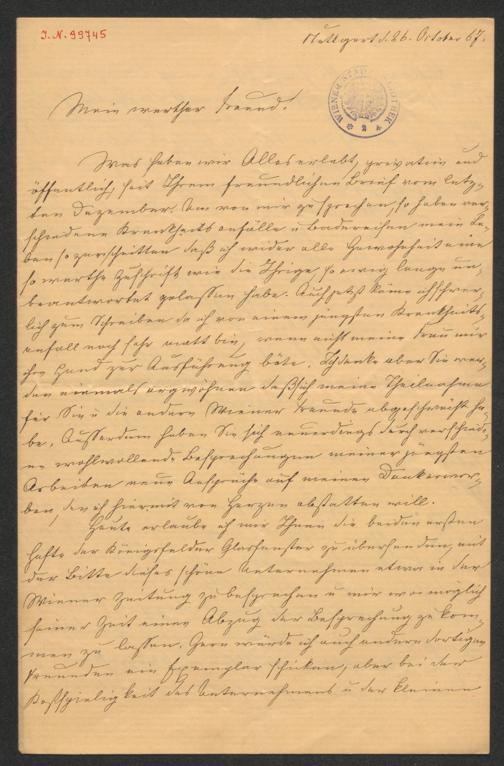 I.N. 99745
Stuttgart d. 26. October 67.
WIENER STADT BIBLIOTHEK
Mein werther Freund!
Was haben wir Alles erlebt, privatim und
öffentlich, seit Ihrem freundlichen Brief vom letz-
ten Dezember. Um von mir zu sprechen, so haben ver-
schiedene Krankheitsanfälle u Badereisen mein Le-
ben so zerschnitten daß ich wider alle Gewohnheit eine
so werthe Zuschrift wie die Ihrige, so ewig lange un-
beantwortet gelassen habe. Auch jetzt käme ich schwer-
lich zum Schreiben da ich von einem jüngsten Krankheits-
anfall noch sehr matt bin, wenn nicht meine Frau mir
ihre Hand zur Ausführung böte. Ich denke aber Sie wer-
den niemals argwöhnen daß sich meine Theilnahme
für Sie u die andern Wiener Freunde abgeschwächt ha-
be. Ausserdem haben Sie sich neuerdings durch verschiede-
ne wohlwollende Besprechungen meiner jüngsten
Arbeiten neue Ansprüche auf meinen Dank erwor-
ben den ich hiermit von Herzen abstatten will.
Heute erlaube ich mir Ihnen die beiden ersten
Hefte der Königsfelder Glasfenster zu übersenden, mit
der Bitte dieses schöne Unternehmen etwa in der
Wiener Zeitung zu besprechen u mir wo möglich
seiner Zeit einen Abzug der Besprechung zu kom-
men zu lassen. Gern würde ich auch andern dortigen
Freunden ein Exemplar schicken, aber bei der
Kostspieligkeit des Unternehmens u der kleinen